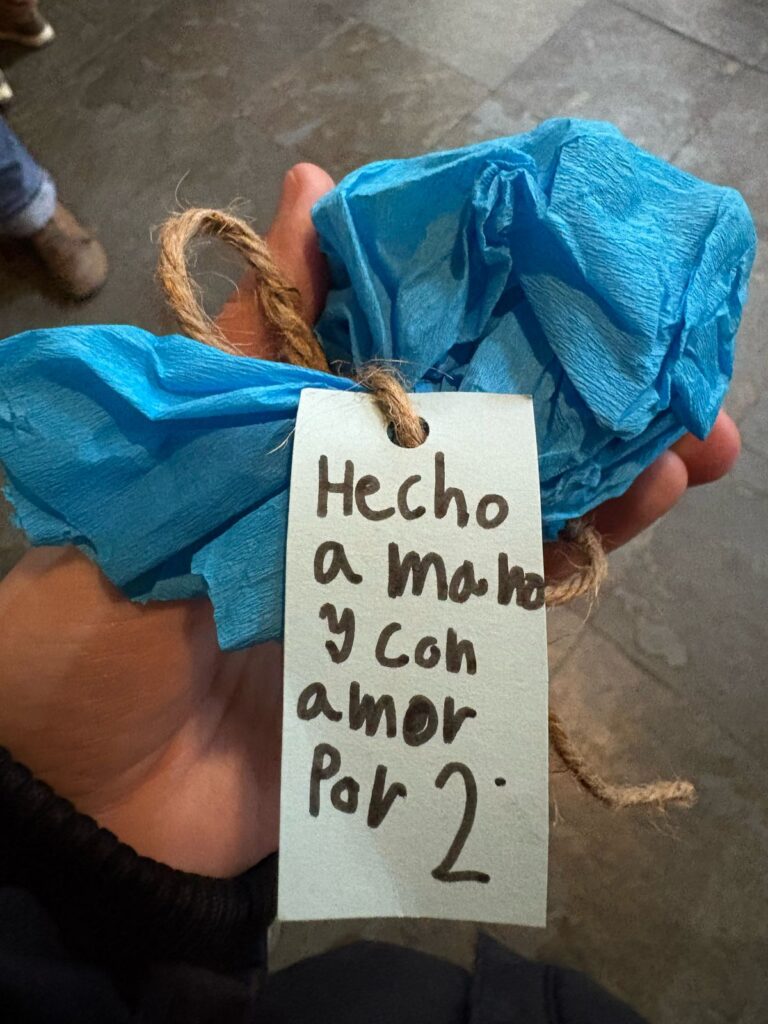 Hecho
a mano
y con
amor
Por 2